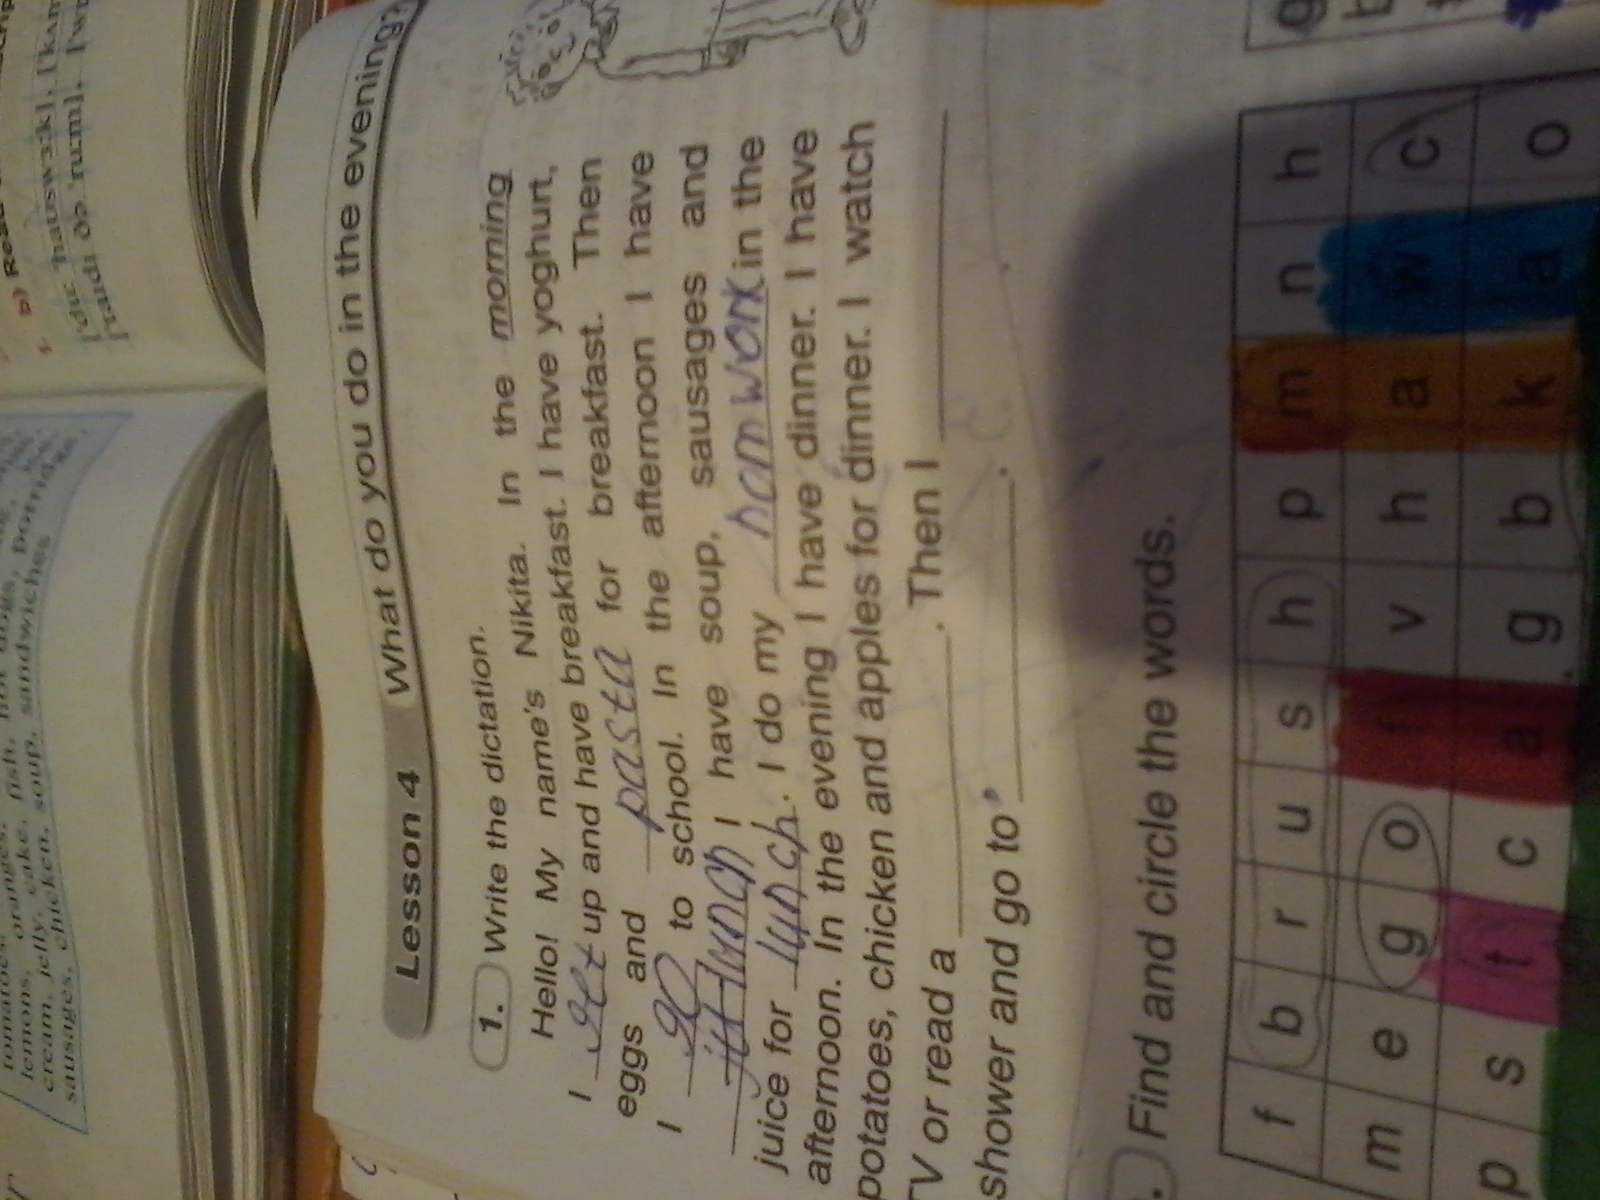 tomatoes, oranges, hot dogs,
lemons, orange, cake, fish,
cream, jelly, cake, soup,
sausages, chicken, sandwiches
b) Read
Lesson 4 What do you do in the evening?
1. Write the dictation.
Hello! My name's Nikita. In the morning
I get up and have breakfast. I have yoghurt,
eggs and pasta for breakfast. Then
I go to school. In the afternoon I have
lunch I have soup, sausages and
juice for lunch. I do my hamwork in the
afternoon. In the evening I have dinner. I have
potatoes, chicken and apples for dinner. I watch
TV or read a ______. Then I ______
shower and go to ______.
Find and circle the words.
f b r u s h p m n h
m e g o f v h a w c
p s t c a g b k a o